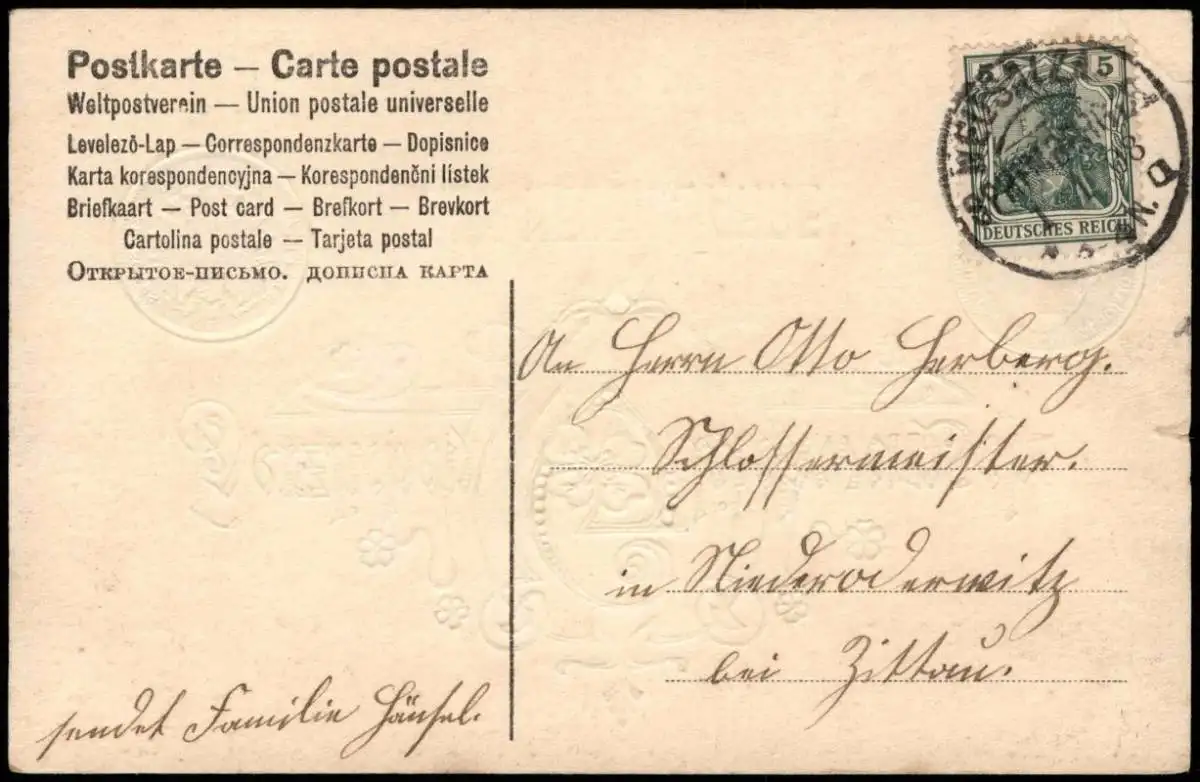 Postkarte — Carte postale
Weltpostverein — Union postale universelle
Levelező-Lap — Correspondenzkarte — Dopisnice
Karta korespondencyjna — Korespondenčni listek
Briefkaart — Post card — Brefkort — Brevkort
Cartolina postale — Tarjeta postal
Открытое-письмо. дописна карта
5 5
DEUTSCHES REICH
An Herrn Otto Herberg.
Schlossermeister.
in Niederoderwitz
bei Zittau.
sendet Familie Hänsel.